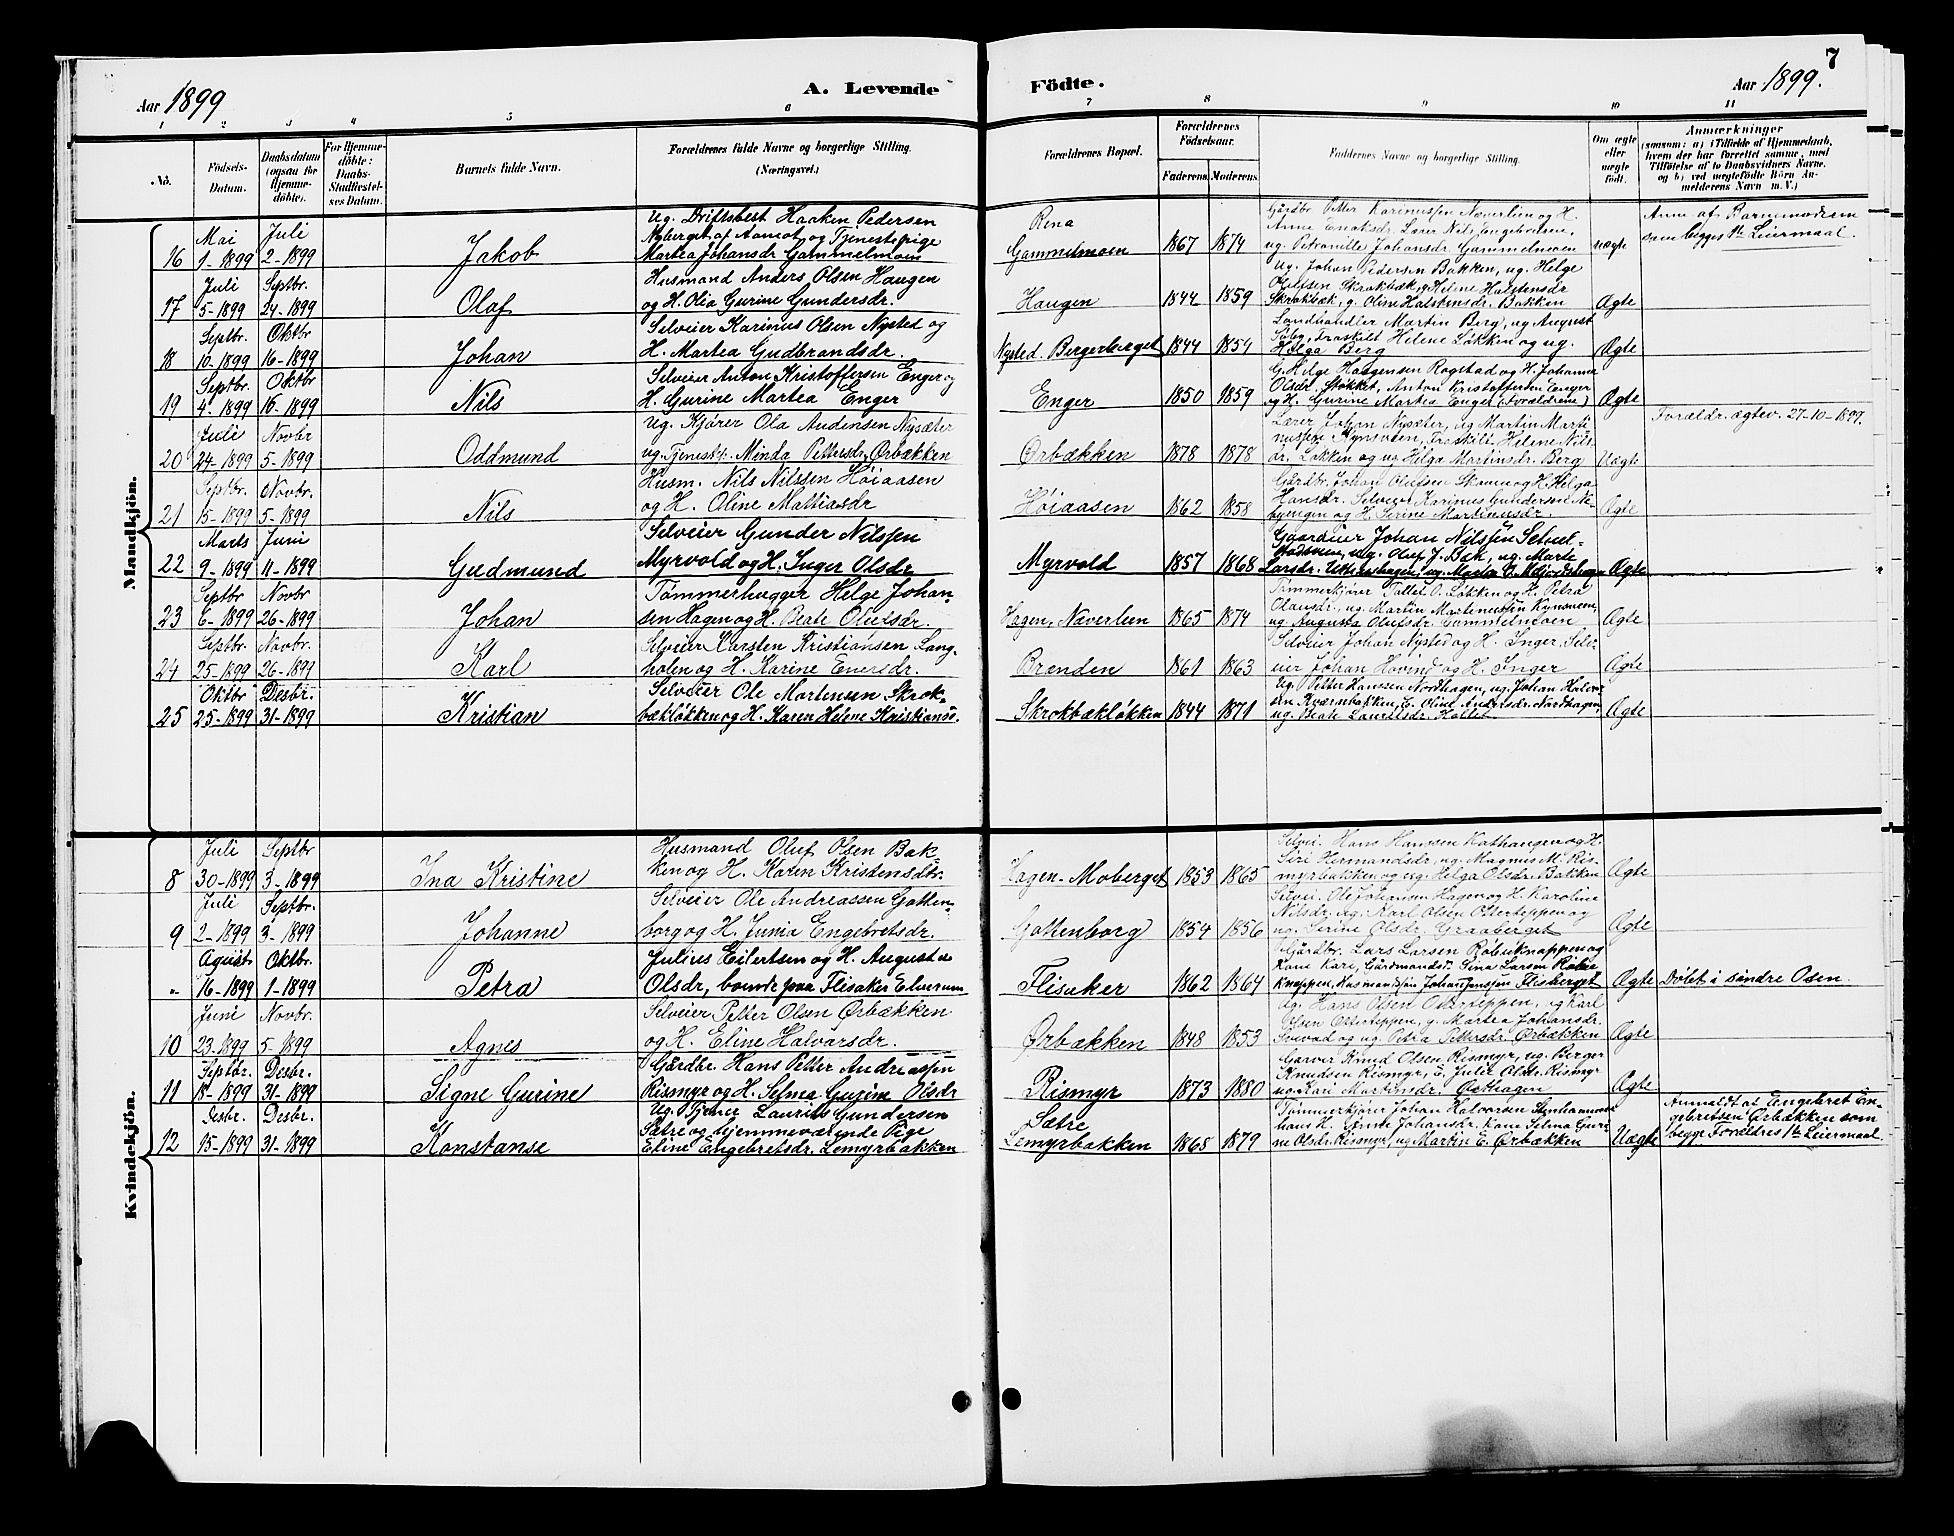 7
Aar 1899
A. Levende
Födte.
Aar 1899.
1 2 3 4 5 6 7 8 9 10 11
No.
Födsels-
Datum.
Daabsdatum
(ogsaa for
Hjemme-
döbte).
For Hjemme-
döbte:
Daabs-
Stadfæstel-
ses Datum.
Barnets fulde Navn.
Forældrenes fulde Navne og borgerlige Stilling.
(Næringsvei.)
Forældrenes Bopæl.
Forældrenes
Födselsaar.
Faderens.
Moderens.
Faddernes Navne og borgerlige Stilling.
Om ægte
eller
uægte
födt.
Anmærkninger
(saasom: a) i Tilfælde af Hjemmedaab,
hvem der har forrettet samme, med
Tilföielse af to Daabsvidners Navne,
og b) ved uægtefödte Börn An-
melderens Navn m. V.)
Mandkjön.
16
Mai
1-1899
Juli
2-1899
Jakob
Ug. Driftsbest Haaken Pedersen
Nyberget af Aamot og Tjenestepige
Martea Johansdr Gammelmoen
Rena
Gammelmoen
1867 1874
Gårdbr Petter Karinussen Næverlien og H.
Anne Enaksdr. Lærer Nils Engebretsen,
ug. Petronille Johansdr. Gammelmoen
uægte
Anm af Barnemoderen
som begges 1ste Leiermaal.
17
Juli
5-1899
Septbr.
24-1899
Olaf
Husmand Anders Olsen Haugen
og H. Olia Gurine Gundersdr.
Haugen
1844 1859
Ug. Johan Pedersen Bakken, ug. Helge
Olufsen Skrokbæk, g Helene Halstensdr
Skrokbæk, g. Oline Halstensdr. Bakken
Ægte
18
Septbr.
10-1899
Oktbr
16-1899
Johan
Selveier Karinus Olsen Nysted og
H. Martea Gudbrandsdr.
Nysted. Bergerberget
1844 1854
Landhandler Martin Berg, ug August
Fraskilt Helene Løkken og ug.
Helga Berg
Ægte
19
Septbr.
4-1899
Oktbr
16-1899
Nils
Selveier Anton Kristoffersen Enger og
H. Gurine Martea Enger
Enger
1850 1859
G. Helge Haagensen Rogstad og H. Johanna
Olsdr. Støkket, Anton Kristoffersen Enger
og H. Gurine Martea Enger (Forældrene)
Ægte
20
Juli
24-1899
Novbr
5-1899
Oddmund
Ug. Kjører Ola Audensen Nysæter
ug. Tjenestp. Minda Pettersdr, Ørbækken
Ørbækken
1878 1878
Lærer Johan Nysæter, ug Martin Marti
nussen Kynsveen, Fraskilt Helene Nils
dr. Løkken og ug Helga Martinsdr. Berg
Uægte
Forældr. ægtev. 27-10-1899.
21
Septbr.
15-1899
Novbr.
5-1899
Nils
Husm. Nils Nilssen Høiaasen
og H. Oline Mattiasdr
Høiaasen
1862 1858
Gårdbr. Johan Olufsen og H. Helga
Hansdr. Selveier Karinus Gundersen
og H. Serine Martinusdr.
Ægte
22
Marts
9-1899
Juni
11-1899
Gudmund
Selveier Gunder Nilssen
Myrvold og H. Inger Olsdr
Myrvold
1857 1868
Gaardeier Johan Nilssen
ug. Oluf J. Bek, ug. Marte
Larsdr.
Ægte
23
Septbr
6-1899
Novbr
26-1899
Johan
Tømmerhugger Helge Johan-
sen Hagen og H. Beate Olufsdr.
Hagen, Næverlien
1865 1874
Tømmerkjører Tollef O. Løkken og H. Petra
Olausdr., ug. Martin Martinussen Kynsveen,
ug Augusta Olufsdr. Gammelmoen
Ægte
24
Septbr.
25-1899
Novbr.
26-1899
Karl
Selveier Karsten Kristiansen Lang-
holen og H. Karine Enersdr.
Brenden
1861 1863
Selveier Johan Nysted og H. Inger. Selv
eier Johan Hovind og H. Inger
Ægte
25
Oktbr
25-1899
Desbr.
31-1899
Kristian
Selveier Ole Martensen Skrok-
bækløkken og H. Karen Helene Kristiansd.
Skrokbækløkken
1844 1871
Ug. Petter Hanssen Nordhagen, ug. Johan Halvor
sen Kværnbækken, E. Oline Andersdr. Nordhagen,
ug. Beate Lauritsdr.
Ægte
Kvindekjön.
8
Juli
30-1899
Septbr
3-1899
Ina Kristine
Husmand Oluf Olsen Bak-
ken og H. Karen Kristensdtr.
Hagen-Moberget
1853 1865
Selvei. Hans Hanssen Kathaugen og H.
Siri Hermandsdr., ug. Magnus M. Ris-
myrbakken og ug. Helga Olsdr. Bakken
Ægte
9
Juli
2-1899
Septbr.
3-1899
Johanne
Selveier Ole Andreassen Gotten-
borg og H. Junia Engebretsdr.
Gottenborg
1854 1856
Selvei. Ole Johansen Hagen og H Karoline
Nilsdr, ug. Karl Olsen Otterteppen og
ug. Serine Olsdr. Graaberget
Ægte
"
Agust
16-1899
Oktbr.
1-1899
Petra
Julius Eilertsen og H. Augusta
Olsdr, boende paa Flisaker Elverum
Flisaker
1862 1864
Gårdbr. Lars Larsen Røbækknappen og
Kone Kari, Gårdmandst. Sina Larsen
Knappen, Husmandssøn Johan Jenssen Flisberget
Ægte
Døbt i søndre Osen.
10
Juni
23-1899
Novbr.
5-1899
Agnes
Selveier Petter Olsen Ørbækken
og H. Eline Halvarsdr.
Ørbækken
1848 1853
Ug. Hans Olsen Ottertеppen, ug Karl
Olsen Ottertеppen, g. Martea Johansdr.
og ug. Petra Pettersdr. Ørbækken
Ægte
11
Septbr.
18-1899
Desbr.
31-1899
Signe Gurine
Gårdbr. Hans Petter Andreassen
Rismyr og H. Selma Gurine Olsdr
Rismyr
1873 1880
Garver Knud Olsen Rismyr, ug. Berger
Knudsen Rismyr, E. Julie Olsdr. Rismyr
ug Kari Martinsdr. Østhagen
Ægte
12
Desbr.
15-1899
Desbr.
31-1899
Konstanse
Ug. Tjener Laurits Gundersen
Sætre og hjemmeværende Pige
Eline Engebretsdr. Lemyrbakken
Sætre
Lemyrbakken
1865 1879
Tømmerkjører Johan Halvorsen
hans H. Johansdr. Kone Selma Guri
ne Olsdr. Rismyr, ug Martin E. Ørbækken
Uægte
Anmeldt af Engebret En-
gebretsen Ørbækken som
begge Forældres 1ste Leiermaal